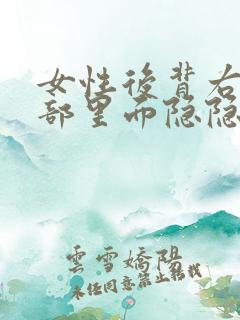 女性后背右
部里面隐隐
雲雪嬌陽
未经同意禁止转载